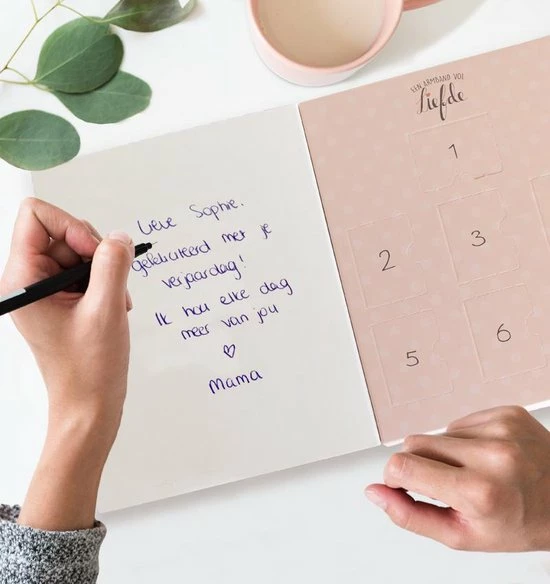 Lieve Sophie,
gefeliciteerd met je
verjaardag!
Ik hou elke dag
meer van jou
♡
Mama
EEN ARMBAND VOL
Liefde
1
2
3
5
6